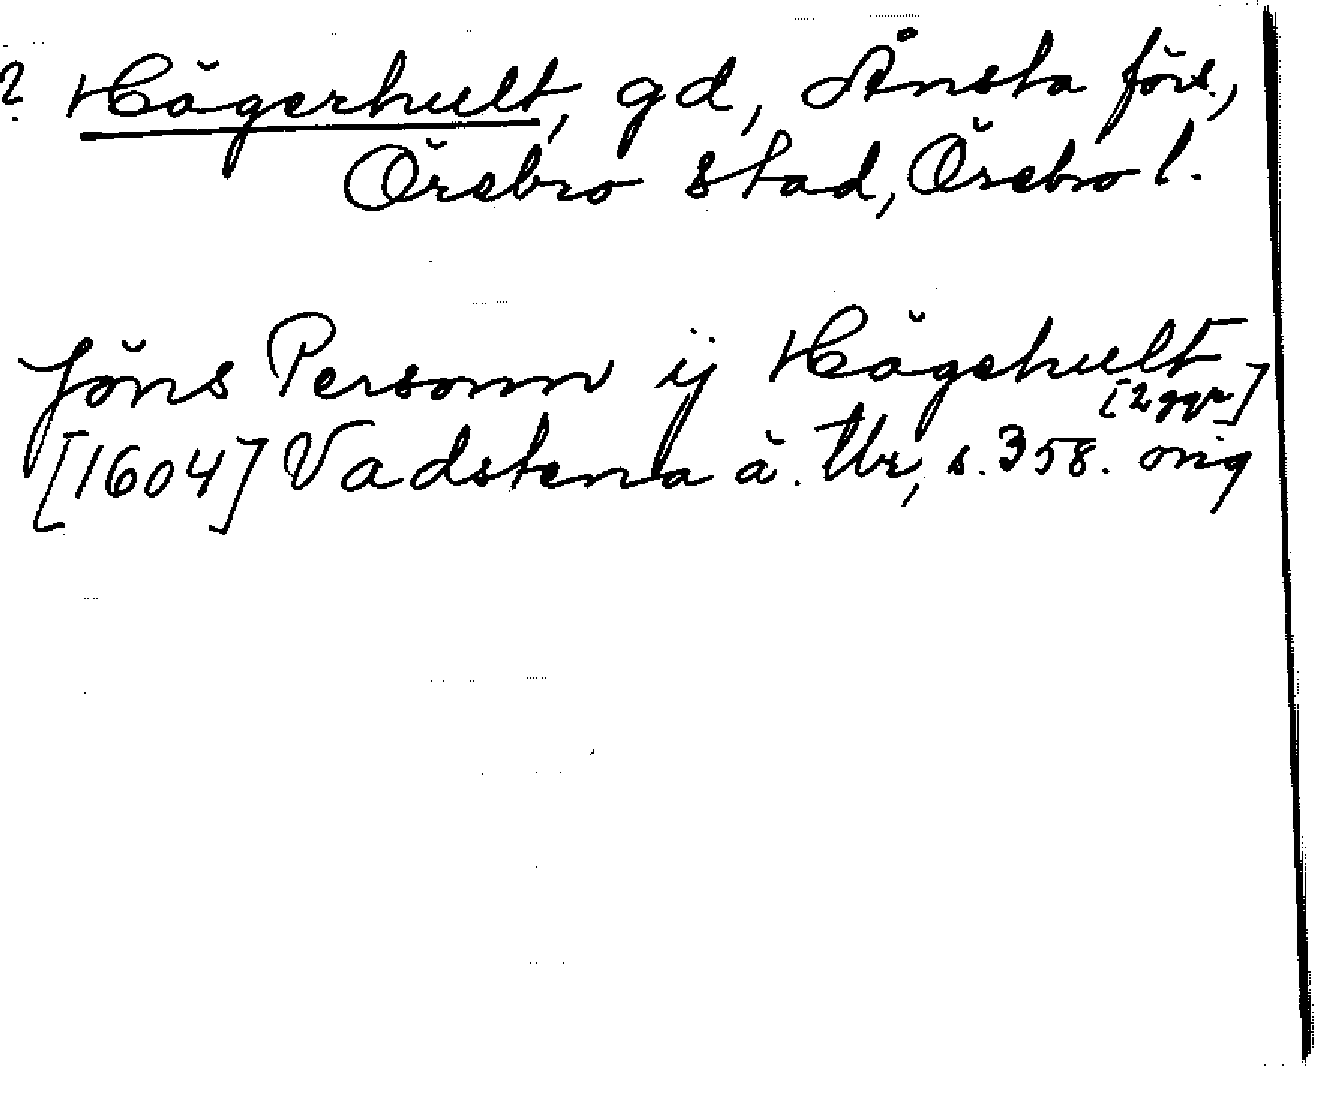 ? Hägerhult, gd, Ånsta förs.,
Örebro stad, Örebro l.
Jöns Personn ij Hägehult
[2 ggr]
[1604] Vadstena ä. Ur, s. 358. orig